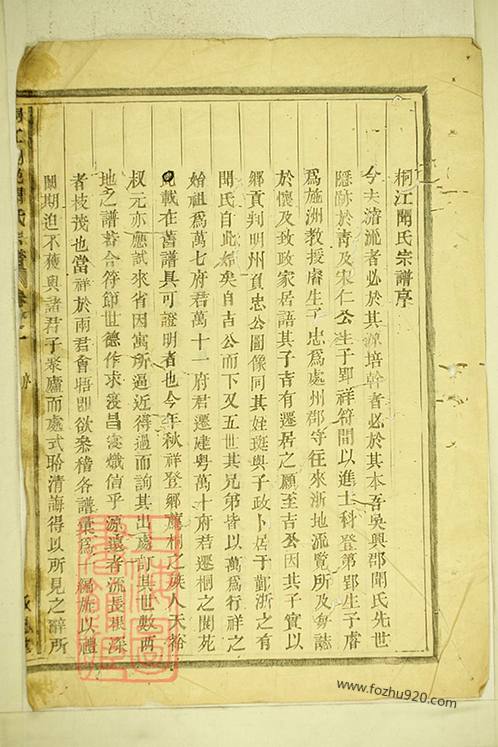 桐江聞氏宗譜序
今夫清流者必於其源培幹者必於其本吾吳興郡聞氏先世
隱跡於青及宋仁公生子郢祥符間以進士科登第郢生子膺
爲施洲教授膺生子忠爲處州郡守往來浙地流覽所及每誌
於懷及致政家居語其子吉有遷居之願至吉公因其子實以
鄉貢判明州負忠公圖像同其姪珽與子政卜居于鄞浙之有
聞氏自此始矣自吉公而下又五世其兄弟皆以萬爲行祥之
始祖爲萬七府君萬十一府君遷建粵萬十府君遷桐之聞苑
載在舊譜具可證明者也今年秋祥登鄉薦桐之族人天裕
叔元亦應試來省因寓所逼近得過而詢其出處訂其世數兩
地之譜若合符節世德作求寖昌寖熾信乎源遠者流長根深
者枝茂也當祥於兩君會晤即欲叅稽各譜彙爲一編旋以禮
闈期迫不獲與諸君子聚廬而處式聆清誨得以所見之辭所
www.fozhu920.com